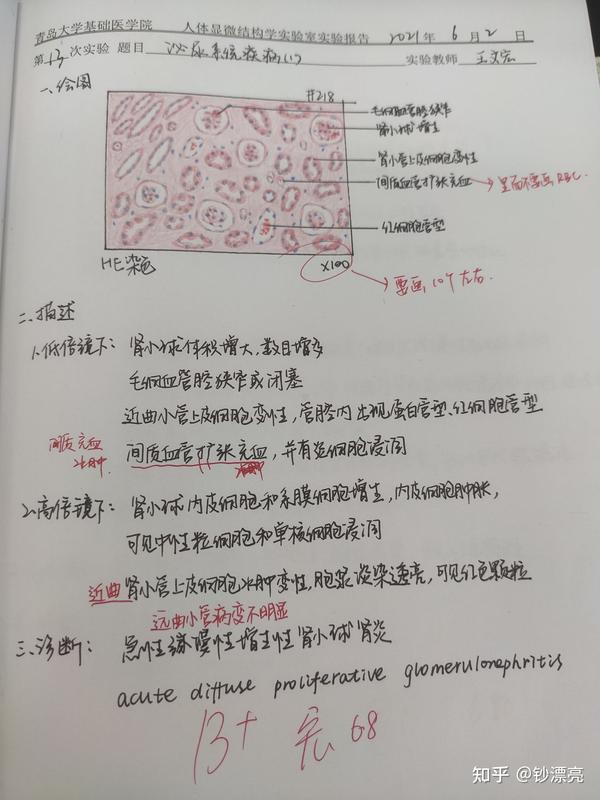 青岛大学基础医学院 人体显微结构学实验室实验报告 2021年 6 月 2 日
第13次实验 题目 泌尿系统疾病(1) 实验教师 王文宏
一、绘图
#218
毛细血管管腔狭窄
肾小球增生
肾小管上皮细胞变性
间质血管扩张充血 → 里面不要画RBC.
红细胞管型
HE染色 ×100
→ 要画10个左右.
二、描述
1.低倍镜下: 肾小球体积增大,数目增多
毛细血管管腔狭窄或闭塞
近曲小管上皮细胞变性,管腔内出现蛋白管型、红细胞管型
间质充血
水肿.
间质血管扩张充血,并有炎细胞浸润
2.高倍镜下: 肾小球内皮细胞和系膜细胞增生,内皮细胞肿胀,
可见中性粒细胞和单核细胞浸润
近曲肾小管上皮细胞水肿变性,胞浆淡染透亮,可见红色颗粒
远曲小管病变不明显
三、诊断: 急性弥漫性增生性肾小球肾炎
acute diffuse proliferative glomerulonephritis
B+ 宏 6.8
知乎 @钞漂亮